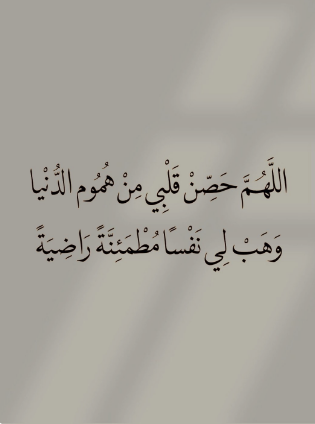 اللَّهُمَّ حَصِّنْ قَلْبِي مِنْ هُمُوم الدُّنْيا
وَهَبْ لِي نَفْسًا مُطْمَئِنَّةً رَاضِيَةً